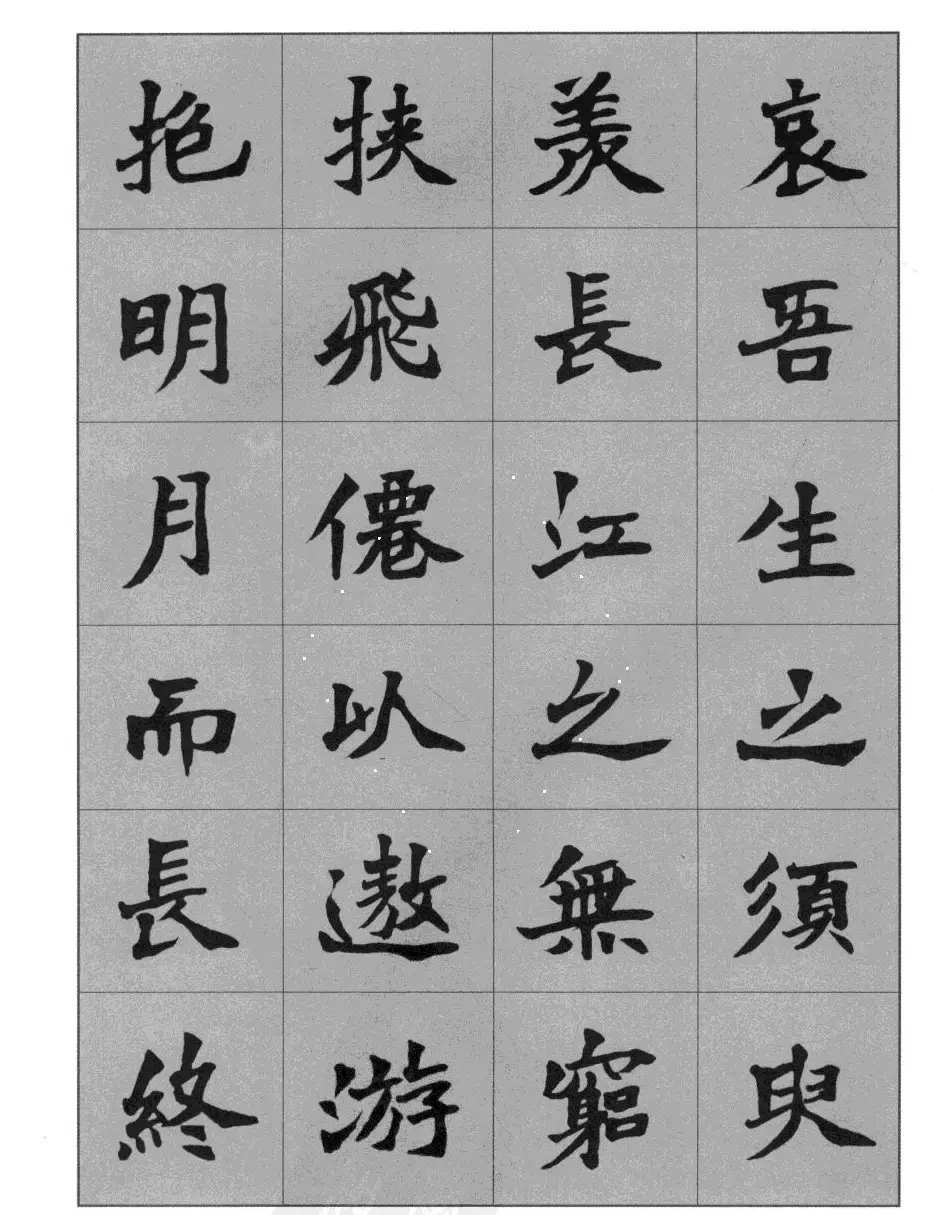 哀吾生之須臾
羨長江之無窮
挾飛僊以遨游
抱明月而長終